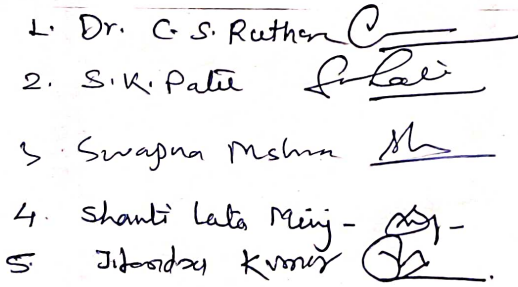 1. Dr. C. S. Rathore
2. S. K. Patil
3 Swapna Mshra
4. Shanti Lata Minj -
5. Jitendra Kumar